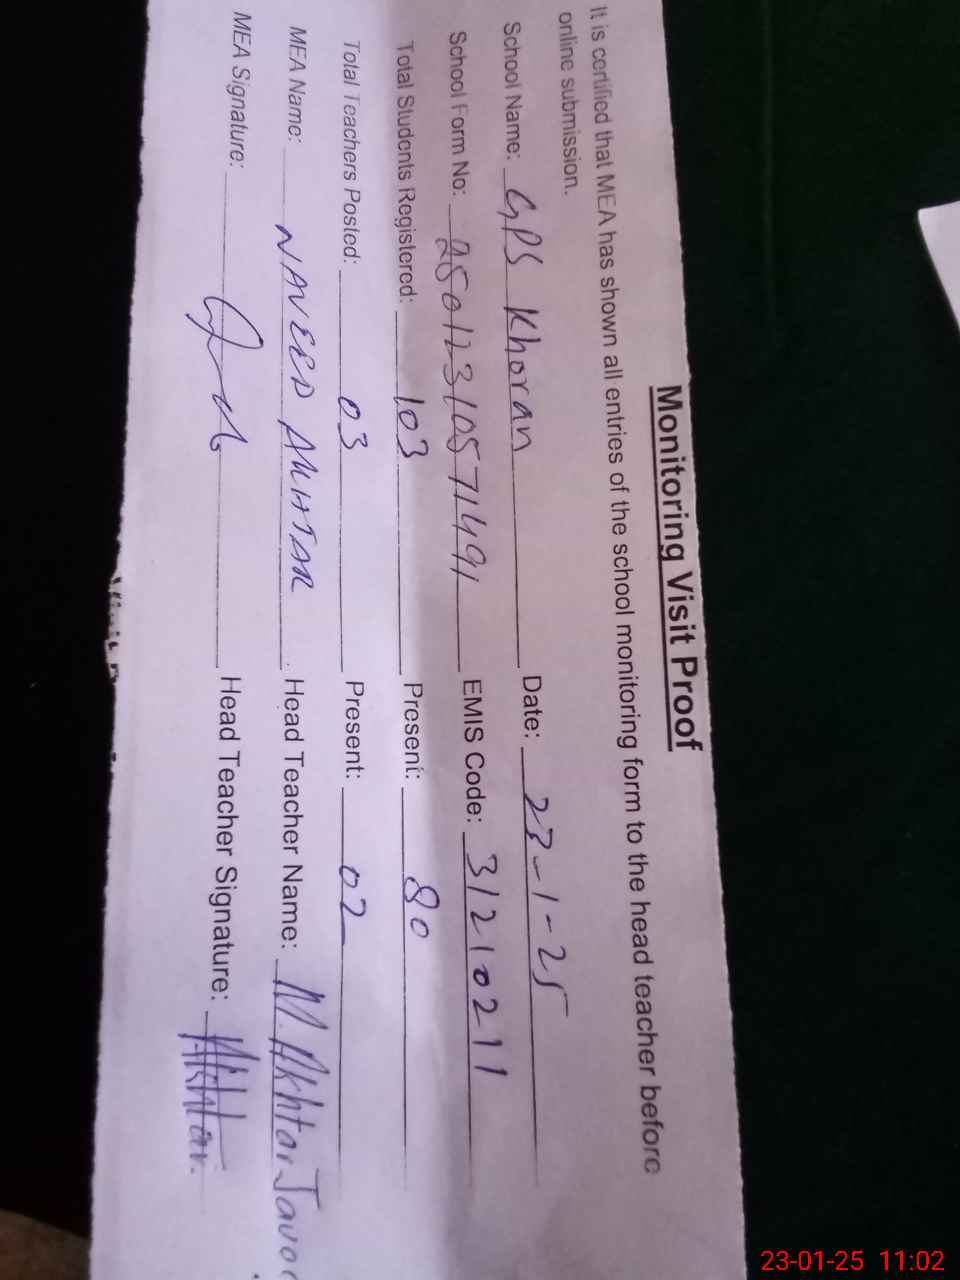 Monitoring Visit Proof
It is certified that MEA has shown all entries of the school monitoring form to the head teacher before
online submission.
School Name: GPS Khoran Date: 23-1-25
School Form No: 25012310571491 EMIS Code: 31210211
Total Students Registered: 103 Present: 80
Total Teachers Posted: 03 Present: 02
MEA Name: NAVEED AKHTAR Head Teacher Name: M. Akhtar
MEA Signature: Head Teacher Signature: Akhtar.
23-01-25 11:02